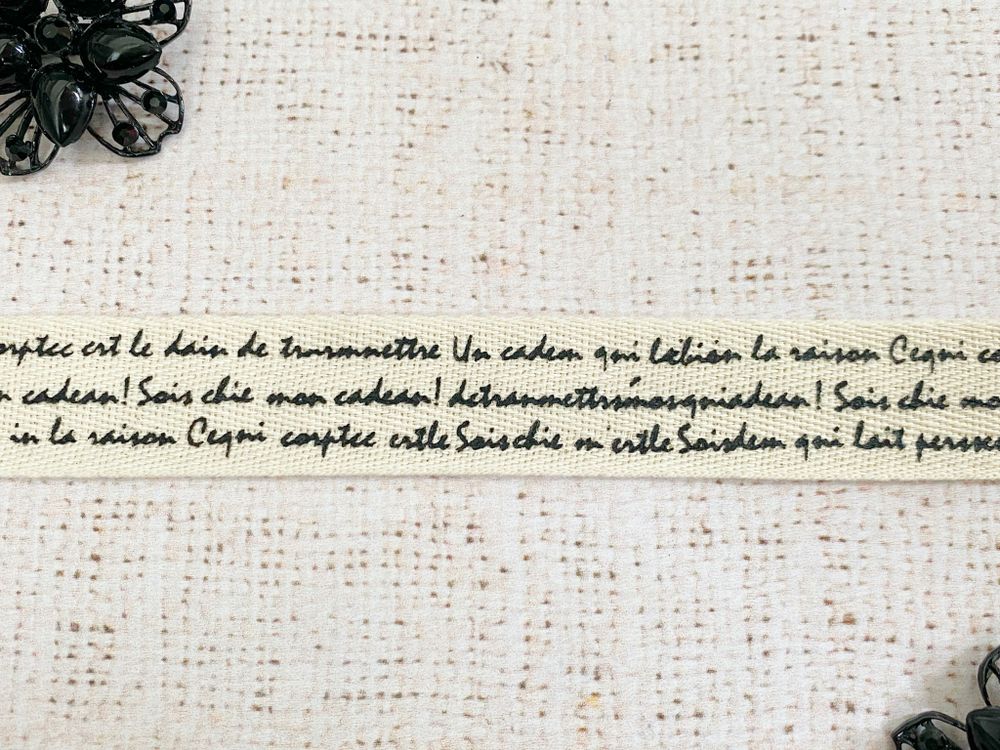 corptec ert le dain de trwrmnettre Un cadem qni labiain la raison Ceqni co
n cadean! Sois chie mon cadean! detranmettrsmosqniadean! Sois chie mo
in la raison Ceqni corptec ertle Soischie m'ertle Soisdem qni lait persse